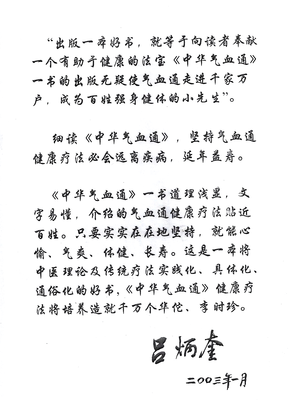 “出版一本好书，就等于向读者奉献
一个有助于健康的法宝《中华气血通》
一书的出版无疑使气血通走进千家万
户，成为百姓强身健体的小先生”。
细读《中华气血通》，坚持气血通
健康疗法必会远离疾病，延年益寿。
《中华气血通》一书道理浅显，文
字易懂，介绍的气血通健康疗法贴近
百姓。只要实实在在地坚持，就能心
愉、气爽、体健、长寿。这是一本将
中医理论及传统疗法实践化、具体化、
通俗化的好书，《中华气血通》健康疗
法将培养造就千万个华佗、李时珍。
吕炳奎
二00三年一月